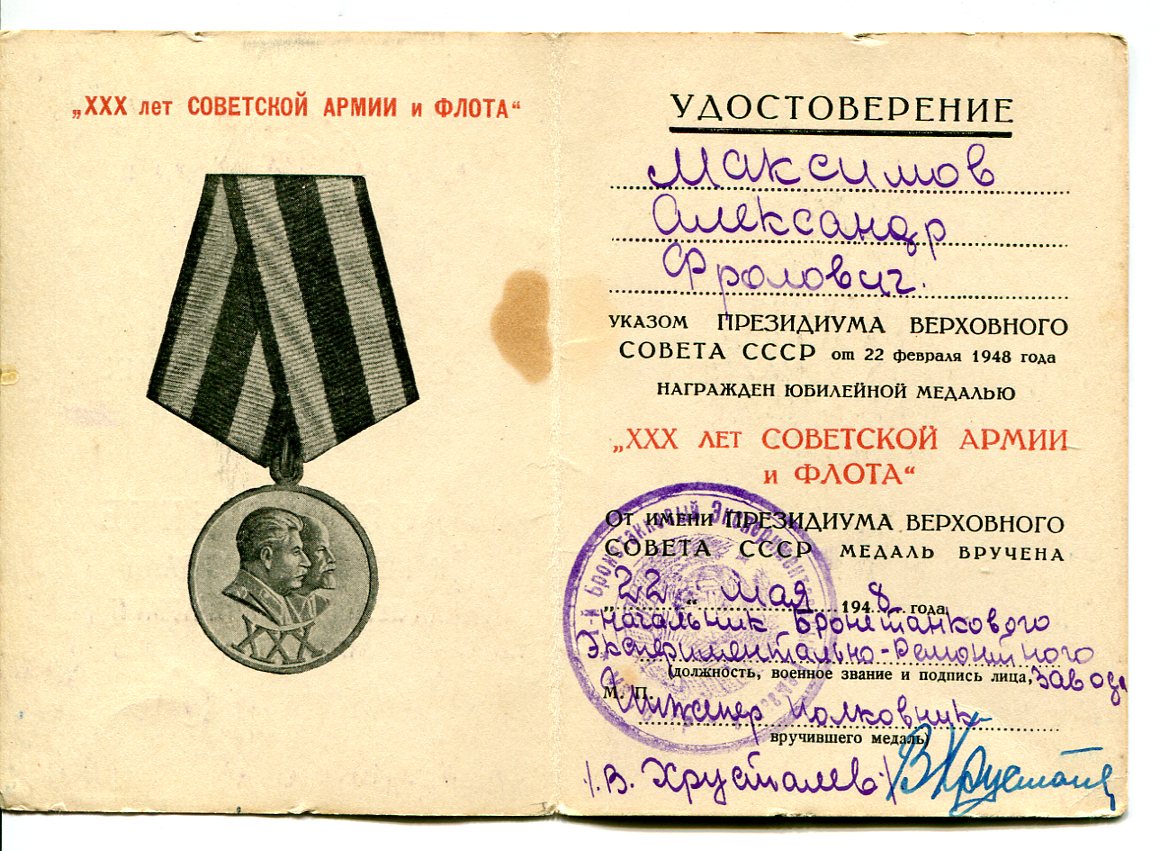 „XXX лет СОВЕТСКОЙ АРМИИ и ФЛОТА“
УДОСТОВЕРЕНИЕ
Максимов
Александр
Фролович.
УКАЗОМ ПРЕЗИДИУМА ВЕРХОВНОГО
СОВЕТА СССР от 22 февраля 1948 года
НАГРАЖДЕН ЮБИЛЕЙНОЙ МЕДАЛЬЮ
„XXX ЛЕТ СОВЕТСКОЙ АРМИИ
и ФЛОТА“
От имени ПРЕЗИДИУМА ВЕРХОВНОГО
СОВЕТА СССР МЕДАЛЬ ВРУЧЕНА
„22“ мая 1948 года
Начальник Бронетанкового
Экспериментально-Ремонтного
(должность, военное звание и подпись лица, завода
М. П.
Инженер Полковник
вручившего медаль)
/В. Хрусталев/
XXX
Бронетанковый